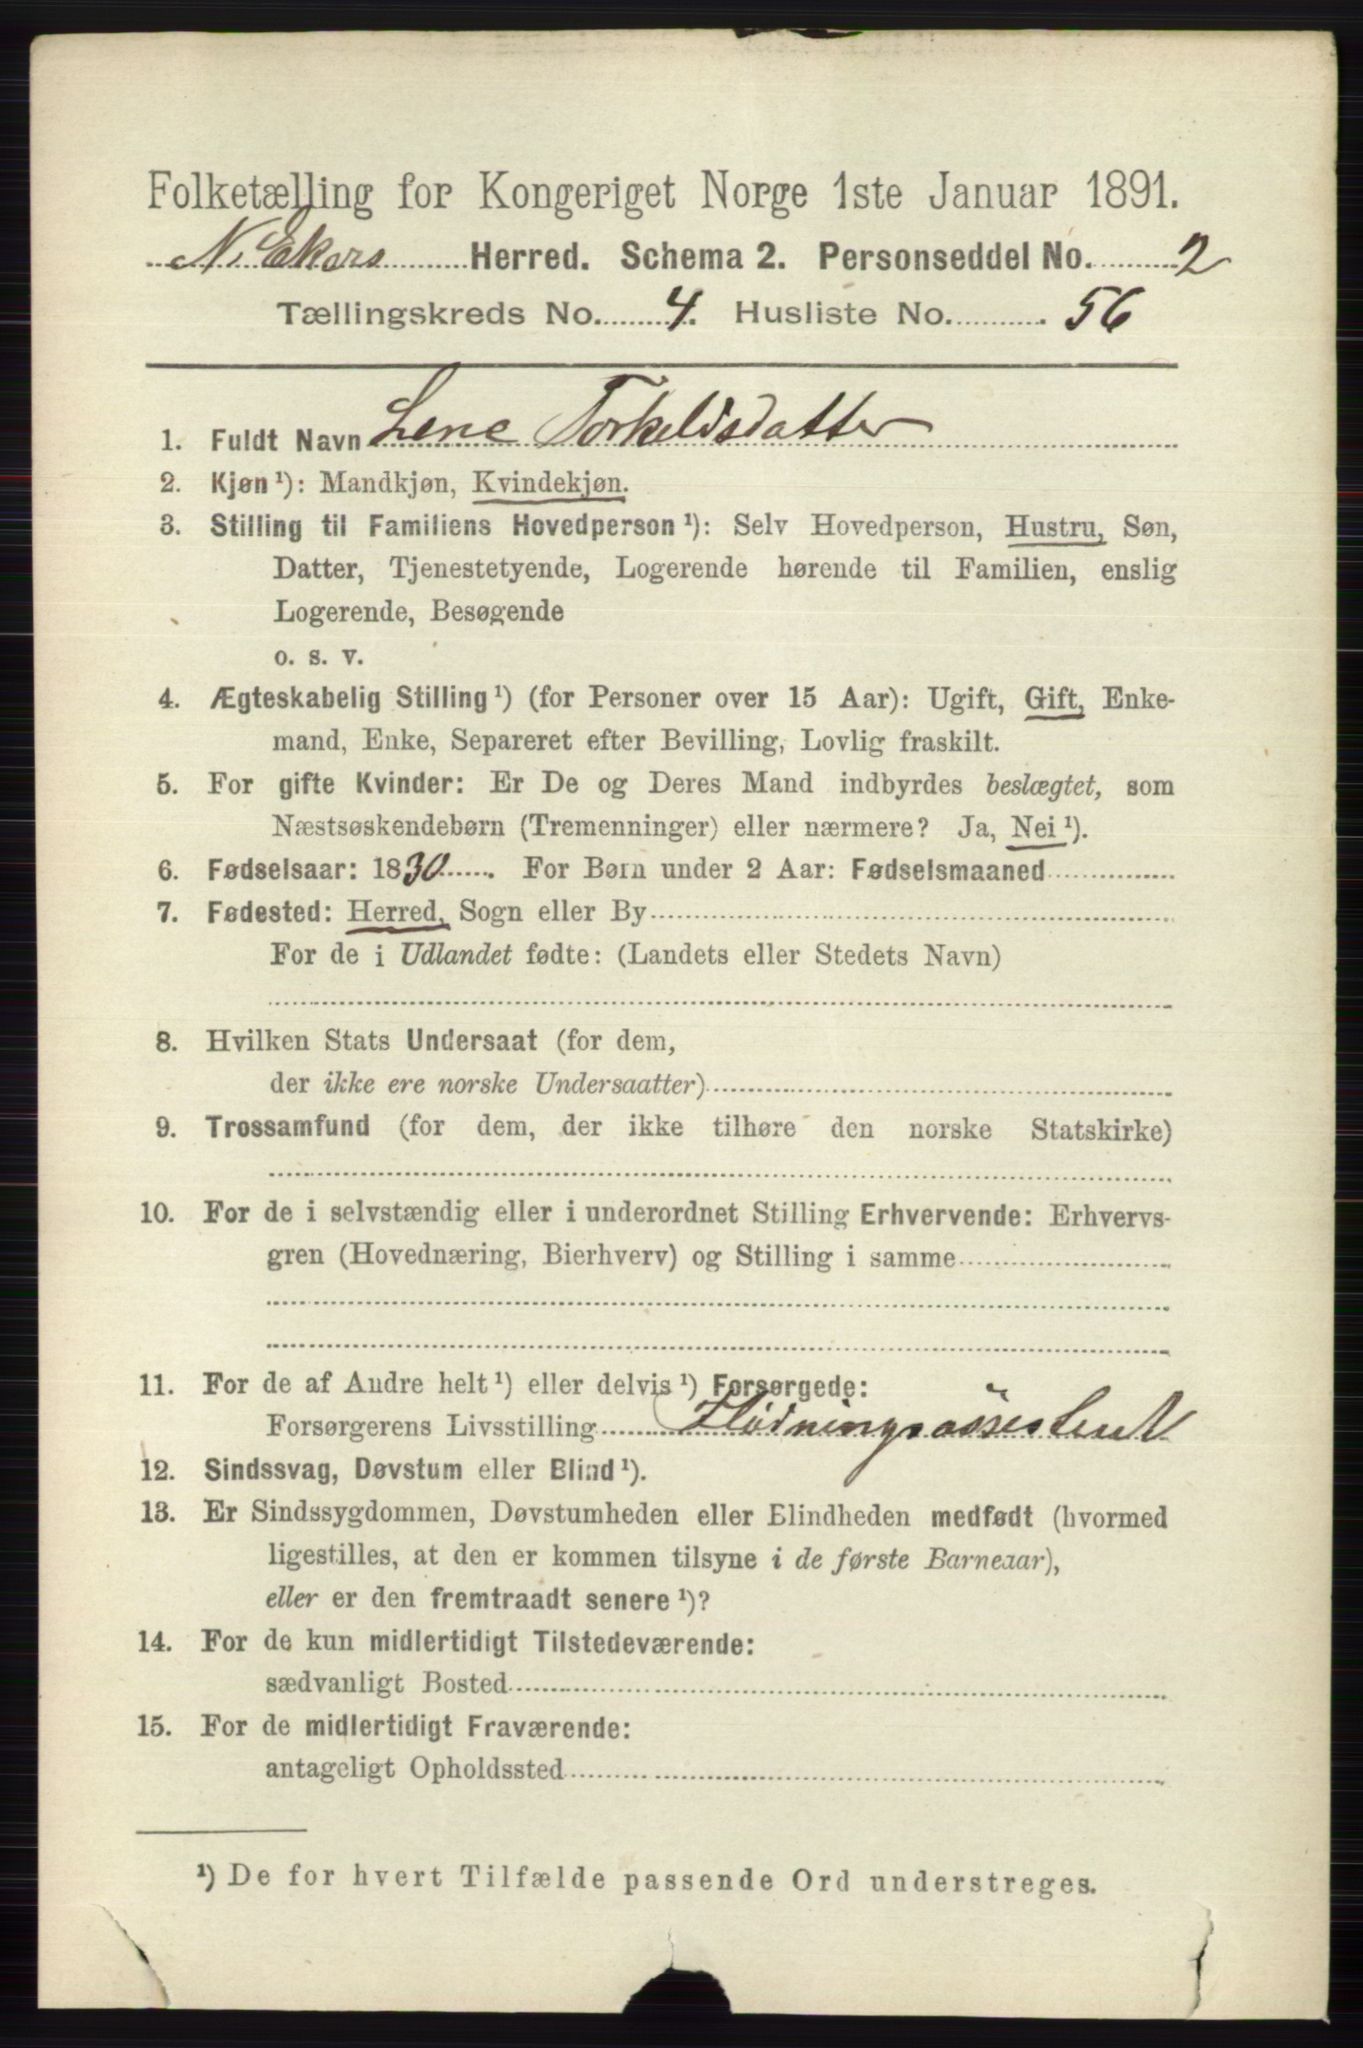 Folketælling for Kongeriget Norge 1ste Januar 1891.
N. Ekers Herred. Schema 2. Personseddel No. 2
Tællingskreds No. 4. Husliste No. 56
1. Fuldt Navn Lene Torkeldsdatter
2. Kjøn ¹): Mandkjøn, Kvindekjøn.
3. Stilling til Familiens Hovedperson ¹): Selv Hovedperson, Hustru, Søn,
Datter, Tjenestetyende, Logerende hørende til Familien, enslig
Logerende, Besøgende
o. s. v.
4. Ægteskabelig Stilling ¹) (for Personer over 15 Aar): Ugift, Gift, Enke-
mand, Enke, Separeret efter Bevilling, Lovlig fraskilt.
5. For gifte Kvinder: Er De og Deres Mand indbyrdes beslægtet, som
Næstsøskendebørn (Tremenninger) eller nærmere? Ja, Nei ¹).
6. Fødselsaar: 1830. For Børn under 2 Aar: Fødselsmaaned
7. Fødested: Herred, Sogn eller By
For de i Udlandet fødte: (Landets eller Stedets Navn)
8. Hvilken Stats Undersaat (for dem,
der ikke ere norske Undersaatter)
9. Trossamfund (for dem, der ikke tilhøre den norske Statskirke)
10. For de i selvstændig eller i underordnet Stilling Erhvervende: Erhvervs-
gren (Hovednæring, Bierhverv) og Stilling i samme
11. For de af Andre helt ¹) eller delvis ¹) Forsørgede:
Forsørgerens Livsstilling
12. Sindssvag, Døvstum eller Blind ¹).
13. Er Sindssygdommen, Døvstumheden eller Blindheden medfødt (hvormed
ligestilles, at den er kommen tilsyne i de første Barneaar),
eller er den fremtraadt senere ¹)?
14. For de kun midlertidigt Tilstedeværende:
sædvanligt Bosted
15. For de midlertidigt Fraværende:
antageligt Opholdssted
¹) De for hvert Tilfælde passende Ord understreges.